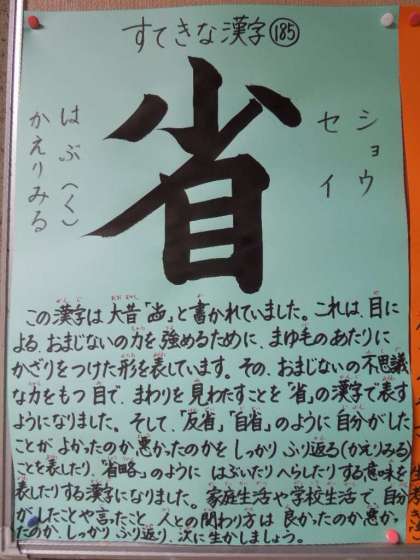 すてきな漢字 185
ショウ
セイ
省
はぶ(く)
かえりみる
この漢字は大昔「 」と書かれていました。これは、目に
よる、おまじないの力を強めるために、まゆ毛のあたりに
かざりをつけた形を表しています。その、おまじないの不思議
な力をもつ目で、まわりを見わたすことを「省」の漢字で表す
ようになりました。そして、「反省」「自省」のように自分がした
ことがよかったのか悪かったのかをしっかりふり返る(かえりみる)
ことを表したり、「省略」のようにはぶいたりへらしたりする意味を
表したりする漢字になりました。家庭生活や学校生活で、自分
がしたことや言ったこと、人との関わり方は良かったのか悪かっ
たのか、しっかりふり返り、次に生かしましょう。